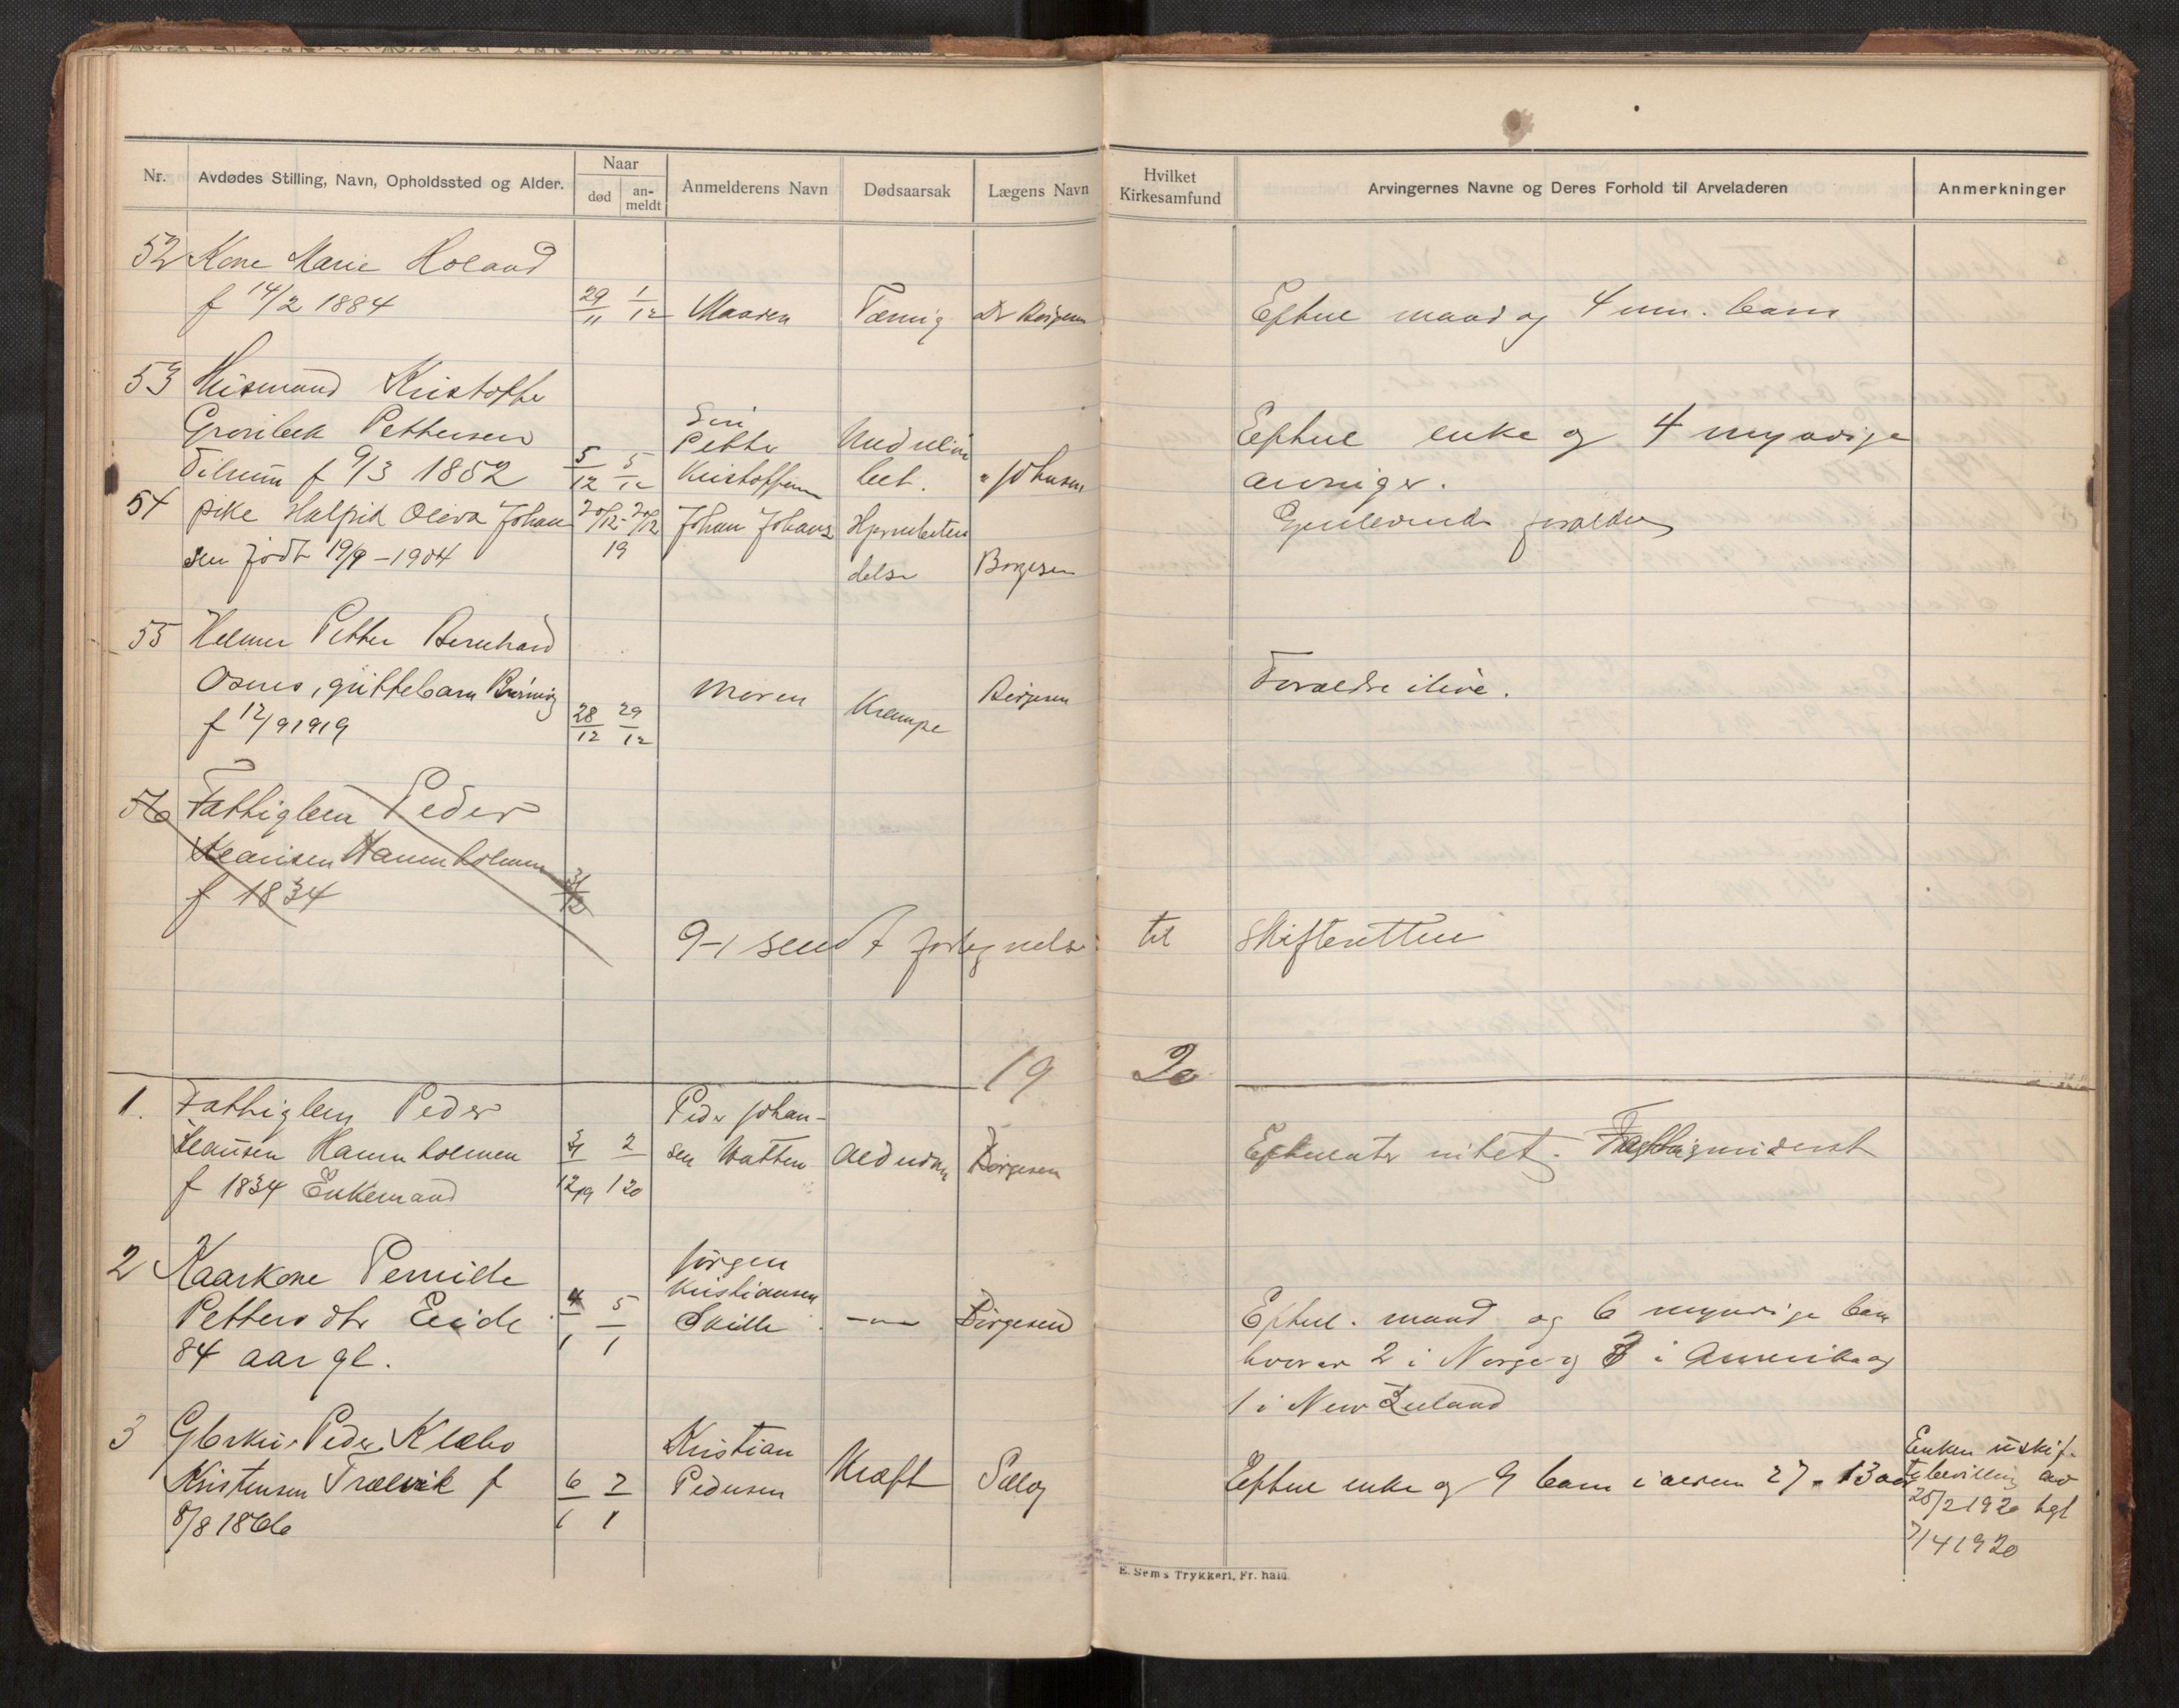 Nr.
Avdødes Stilling, Navn, Opholdssted og Alder.
Naar
død
an-
meldt
Anmelderens Navn
Dødsaarsak
Lægens Navn
Hvilket
Kirkesamfund
Arvingernes Navne og Deres Forhold til Arveladeren
Anmerkninger
52 Kone Marie Holand
f 14/2 1884 29/11 1/12 Manden Tæring Dr Borgesen Efterl mand og 4 um. barn
53 Husmand Kristoffer
Grønbeck Pettersen
Tilrum f 9/3 1852 5/12 5/12
Søn
Petter
Kristoffersen
" Johnsen
Efterl enke og 4 myndige
arvinger.
54 pike Halfrid Oleva Johan
sen født 19/9 - 1904 20/12 - 20/12
19
Johan Johans
Hjernebeten
delse Borgesen
Gjenlevende foraldre
55 Helmer Petter Bernhard
Osnes, guttebarn
f 12/9 1919 28/12 29/12 Moren Krampe Borgesen Foraldre ilive.
56 Fattiglem Peder
Klausen Havnholmen
f 1834 31/12
9-1 sendt fortegnelse til Skifteretten
19 20
1. Fattiglem Peder
Klausen Havnholmen
f 1834 Enkemand 31/12 19 2/1 20
Peder Johan-
sen Vatten Alderdom Borgesen Efterlater intet. Fattigunderst
2 Kaarkone Pernille
Petters dtr Eide
84 aar gl. 4/1 5/1
Jørgen
Kristiansen
Skille -"- Borgesen
Efterl. mand og 6 myndige barn
hvorav 2 i Norge og 3 i Amerika og
1 i New Zeeland
3 Gbrker Peder Klæbo
Kristensen Trælvik f
8/8 1866 6/1 7/1
Kristian
Pedersen Kræft
Efterl enke og 9 barn i alderen 27 - 13 aar
Enken uskif-
tebevilling av
25/2 1920 tgl
7/4 1920
E. Sem's Trykkeri, Fr.hald.